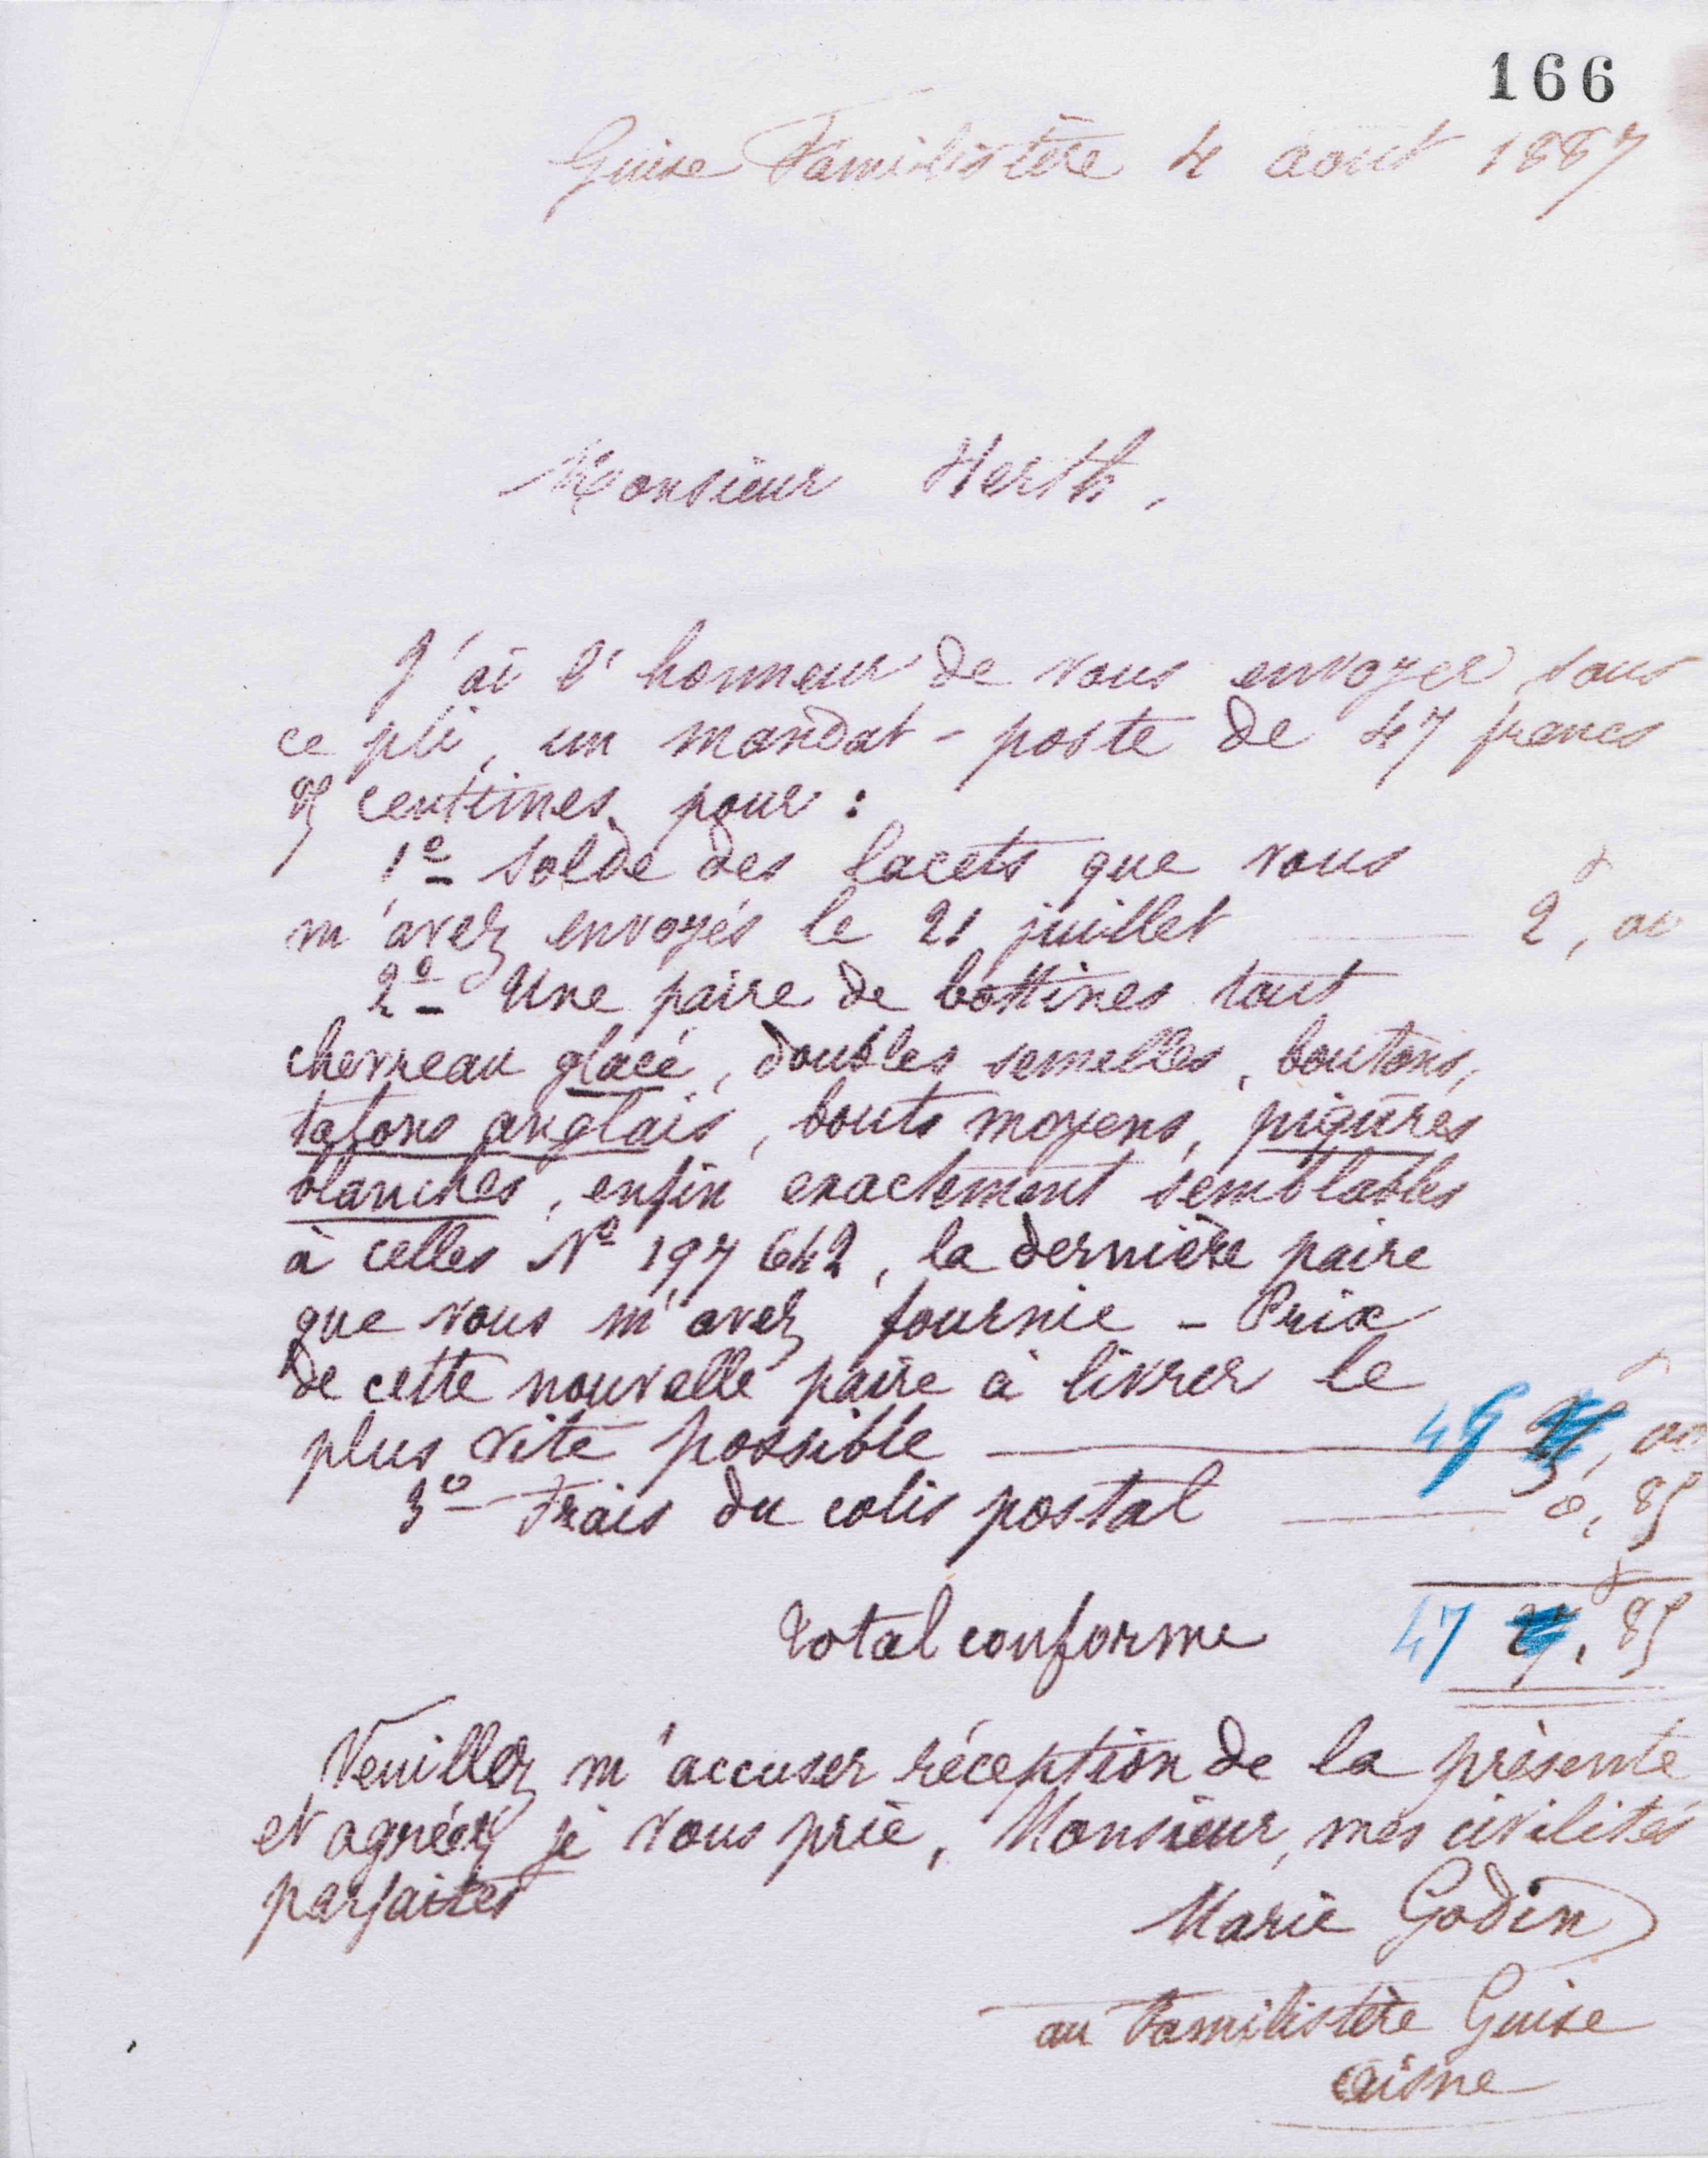 166
Guise Familistère 4 août 1887
Monsieur Herth,
J'ai l'honneur de vous envoyer sous
ce pli, un mandat-poste de 47 francs
85 centimes pour :
1º Solde des lacets que vous
m'avez envoyés le 21 juillet 2f,00
2º Une paire de bottines tout
chevreau glacé, doubles semelles, boutons,
talons anglais, bouts moyens, piqûres
blanches, enfin exactement semblables
à celles Nº 197 642, la dernière paire
que vous m'avez fournie - Prix
de cette nouvelle paire à livrer le
plus vite possible 45f,00
3º Frais du colis postal 0,85
Total conforme 47f,85
Veuillez m'accuser réception de la présente
et agréer, je vous prie, Monsieur, mes civilités
parfaites
Marie Godin
au Familistère Guise
Aisne